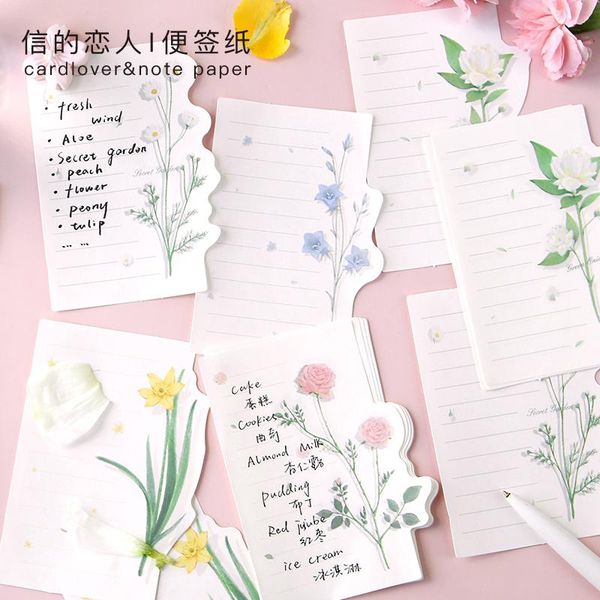 信的恋人I便签纸
cardlover&note paper
• fresh
wind
• Aloe
• Secret gordon
• peach
• flower
• peony
• tulip
... ...
Secret Garden
Cake
蛋糕
Cookies
曲奇
Almond Milk
杏仁露
pudding
布丁
Red jujube
红枣
ice cream
冰淇淋